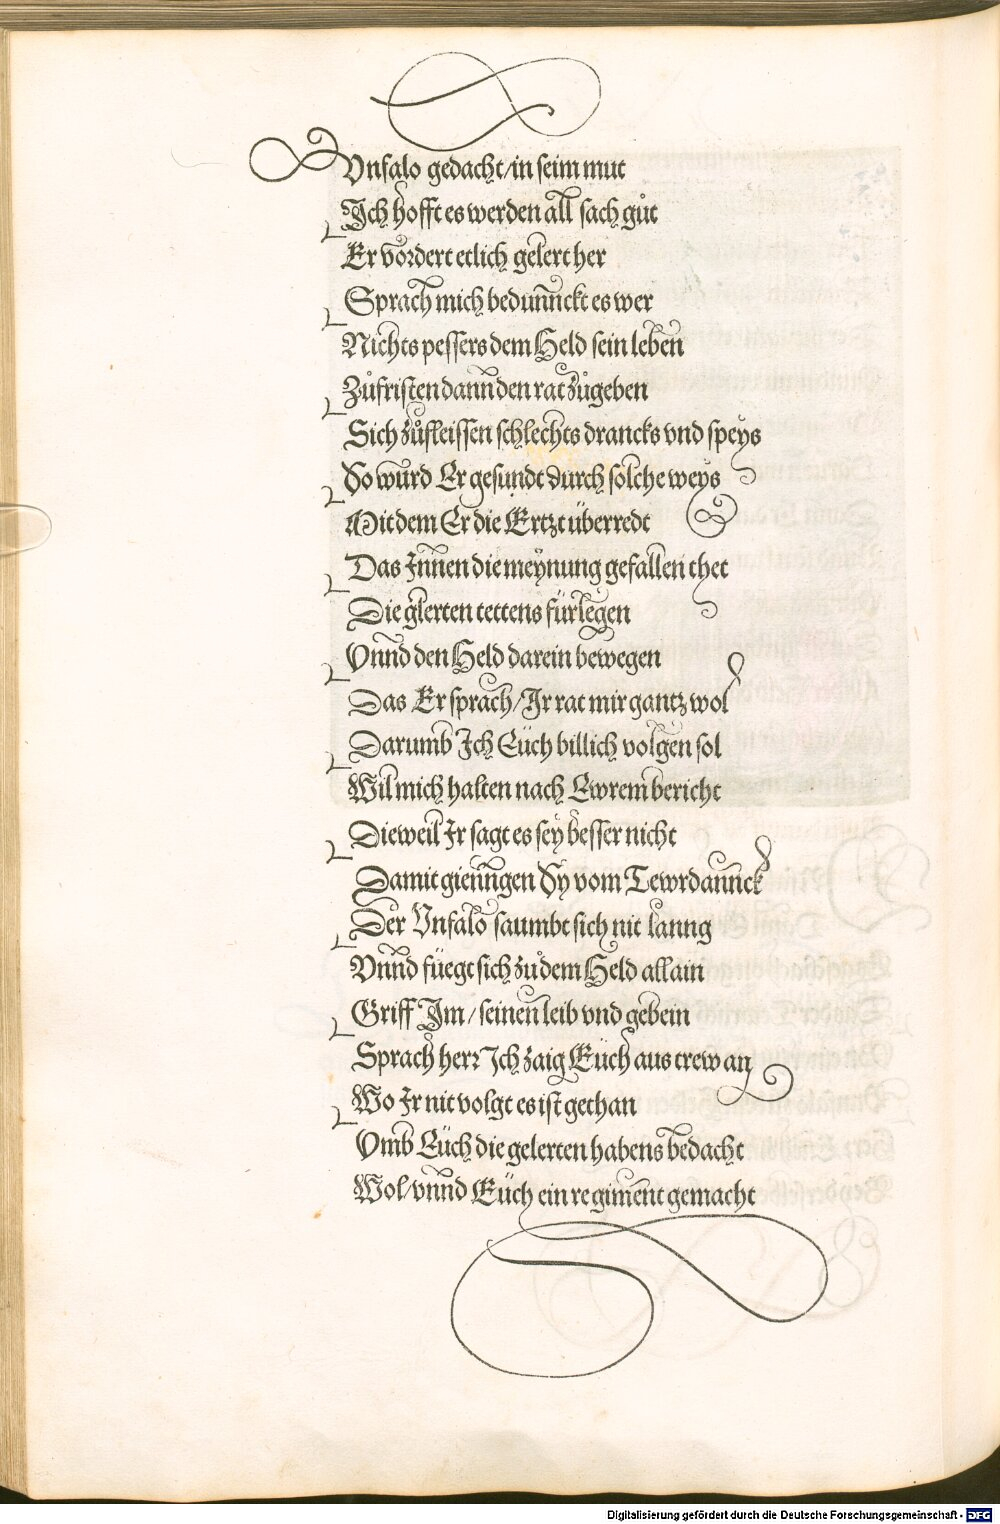 Vnfalo gedacht/in seim mut
Ich hofft es werden all sach gůt
Er vordert etlich gelert her
Sprach mich bedunnckt es wer
Nichts pessers dem Held sein leben
Zůfristen dann den rat zůgeben
Sich zůfleissen schlechts drancks vnd speÿs
So würd Er gesundt durch solche weÿs
Mit dem Er die Ertzt überredt
Das Innen die meÿnung gefallen thet
Die glerten tettens fürlegen
Vnnd den Held darein bewegen
Das Er sprach/Ir rat mir gantz wol
Darumb Ich Eüch billich volgen sol
Wil mich halten nach Ewrem bericht
Dieweil Ir sagt es seÿ besser nicht
Damit giengen Sy vom Tewrdannck
Der Vnfalo saumbt sich nit lanng
Vnnd füegt sich zů dem Held allain
Griff Im/seinen leib vnd gebein
Sprach herr Ich zaig Eüch aus trew an
Wo Ir nit volgt es ist gethan
Vmb Eüch die gelerten habens bedacht
Wol/vnnd Eüch ein regiment gemacht
Digitalisierung gefördert durch die Deutsche Forschungsgemeinschaft - DFG